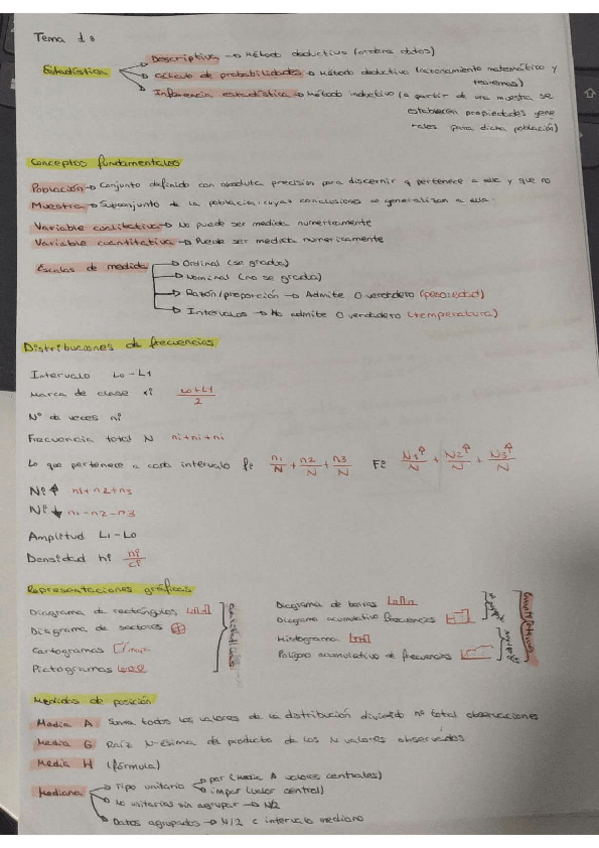 Tema 1:
Estadística
Descriptiva → Método deductivo (ordena datos)
Cálculo de probabilidades → Método deductivo (razonamiento matemático y teoremas)
Inferencia estadística → Método inductivo (a partir de una muestra se
establecen propiedades gene
rales para dicha población)
Conceptos fundamentales
Población → Conjunto definido con absoluta precisión para discernir q pertenece a ella y que no
Muestra → Subconjunto de la población cuyas conclusiones se generalizan a ella.
Variable cualitativa → No puede ser medida numéricamente
Variable cuantitativa → Puede ser medida numéricamente
Escalas de medida
Ordinal (se gradúa)
Nominal (no se gradúa)
Razón/proporción → Admite 0 verdadero (peso, edad)
Intervalos → No admite 0 verdadero (temperatura)
Distribuciones de frecuencias
Intervalo L0 - L1
Marca de clase xi (L0+L1)/2
Nº de veces ni
Frecuencia total N ni+ni+ni
Lo que pertenece a cada intervalo fi n1/N + n2/N + n3/N Fi N1↑/N + N2↑/N + N3↑/N
Ni ↑ n1+n2+n3
Ni ↓ n1-n2-n3
Amplitud L1-L0
Densidad hi ni/ci
Representaciones gráficas
Diagrama de rectángulos
Diagrama de sectores
Cartogramas mapa
Pictogramas
Cualitativas
Diagrama de barras
Diagrama acumulativo frecuencias
Histograma
Polígono acumulativo de frecuencias
Cuantitativas
Medidas de posición
Media A Suma todos los valores de la distribución dividido nº total observaciones
Media G Raíz N-ésima del producto de los N valores observados
Media H (fórmula)
Mediana
Tipo unitario
par (media A valores centrales)
impar (valor central)
No unitarias sin agrupar → N/2
Datos agrupados → N/2 e intervalo mediano